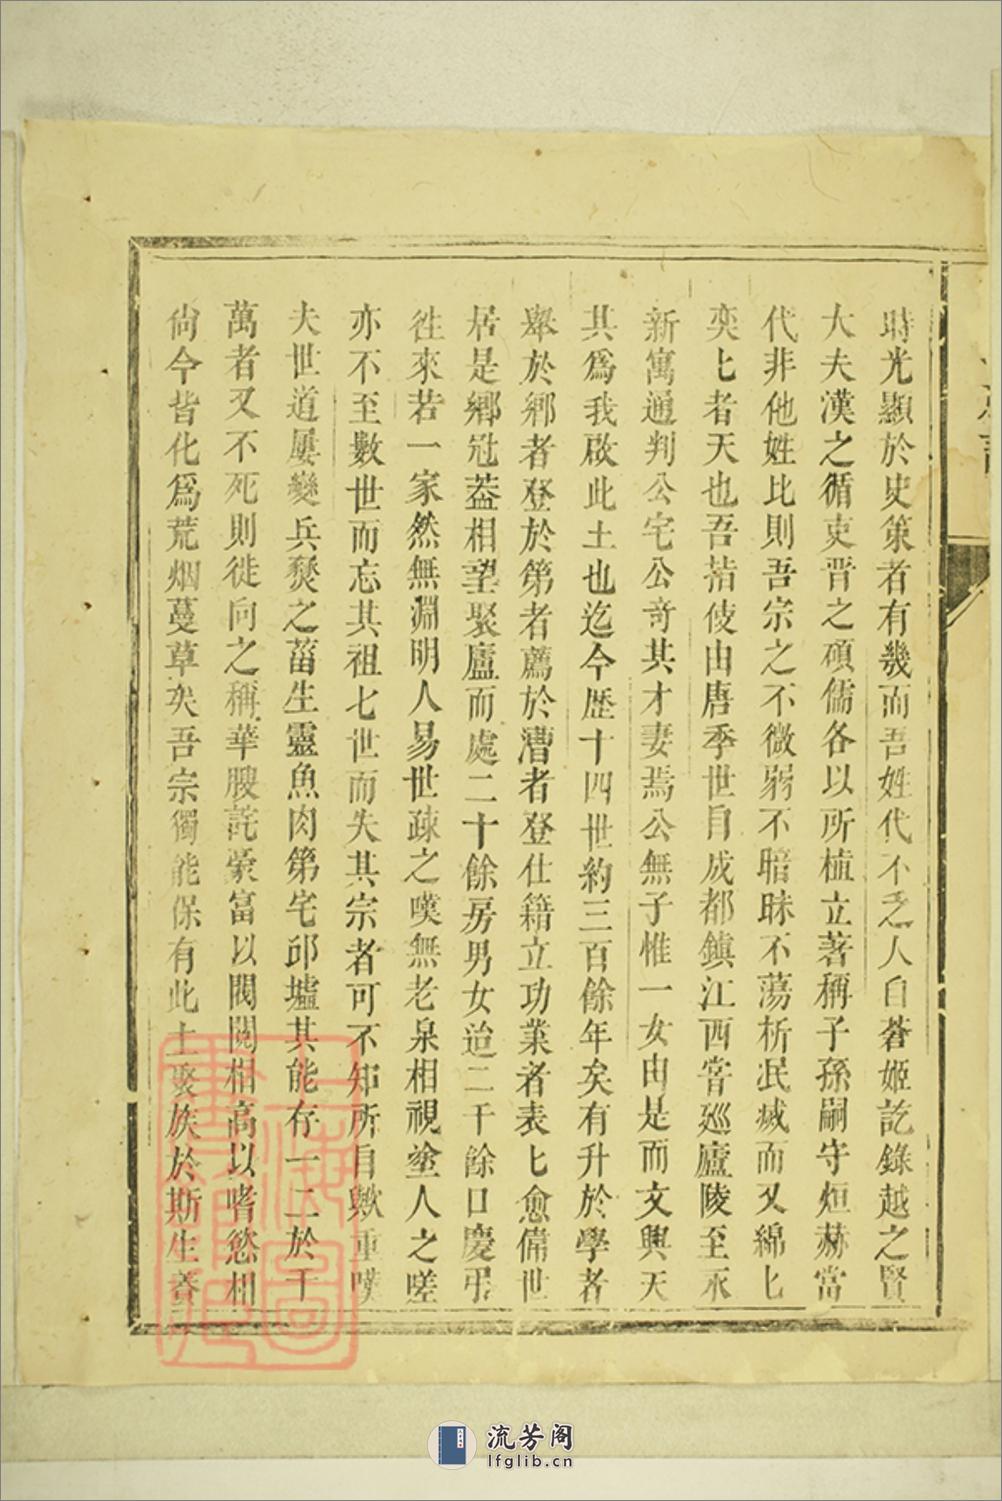 時光顯於史策者有幾而吾姓代不乏人自蒼姬訖錄越之賢
大夫漢之循吏晋之碩儒各以所植立著稱子孫嗣守烜赫當
代非他姓比則吾宗之不微弱不暗昧不蕩析泯滅而又綿匕
奕匕者天也吾祖伎由唐季世自成都鎮江西嘗廵廬陵至永
新寓通判公宅公奇其才妻焉公無子惟一女由是而文興天
其爲我啟此土也迄今歴十四世約三百餘年矣有升於學者
舉於鄉者登於第者薦於漕者登仕籍立功業者表匕愈偉世
居是鄉冠葢相望聚廬而處二十餘房男女迨二千餘口慶弔
徃來若一家然無淵明人易世疎之嘆無老泉相視塗人之嗟
亦不至數世而忘其祖七世而失其宗者可不知所自歟重嘆
夫世道屢變兵燹之菑生靈魚肉第宅邱墟其能存一二於千
萬者又不死則徙向之稱華腴詫豪富以閥閱相高以嗜慾相
尙今皆化爲荒烟蔓草矣吾宗獨能保有此土聚族於斯生養
上海圖書館藏
流芳阁
lfglib.cn